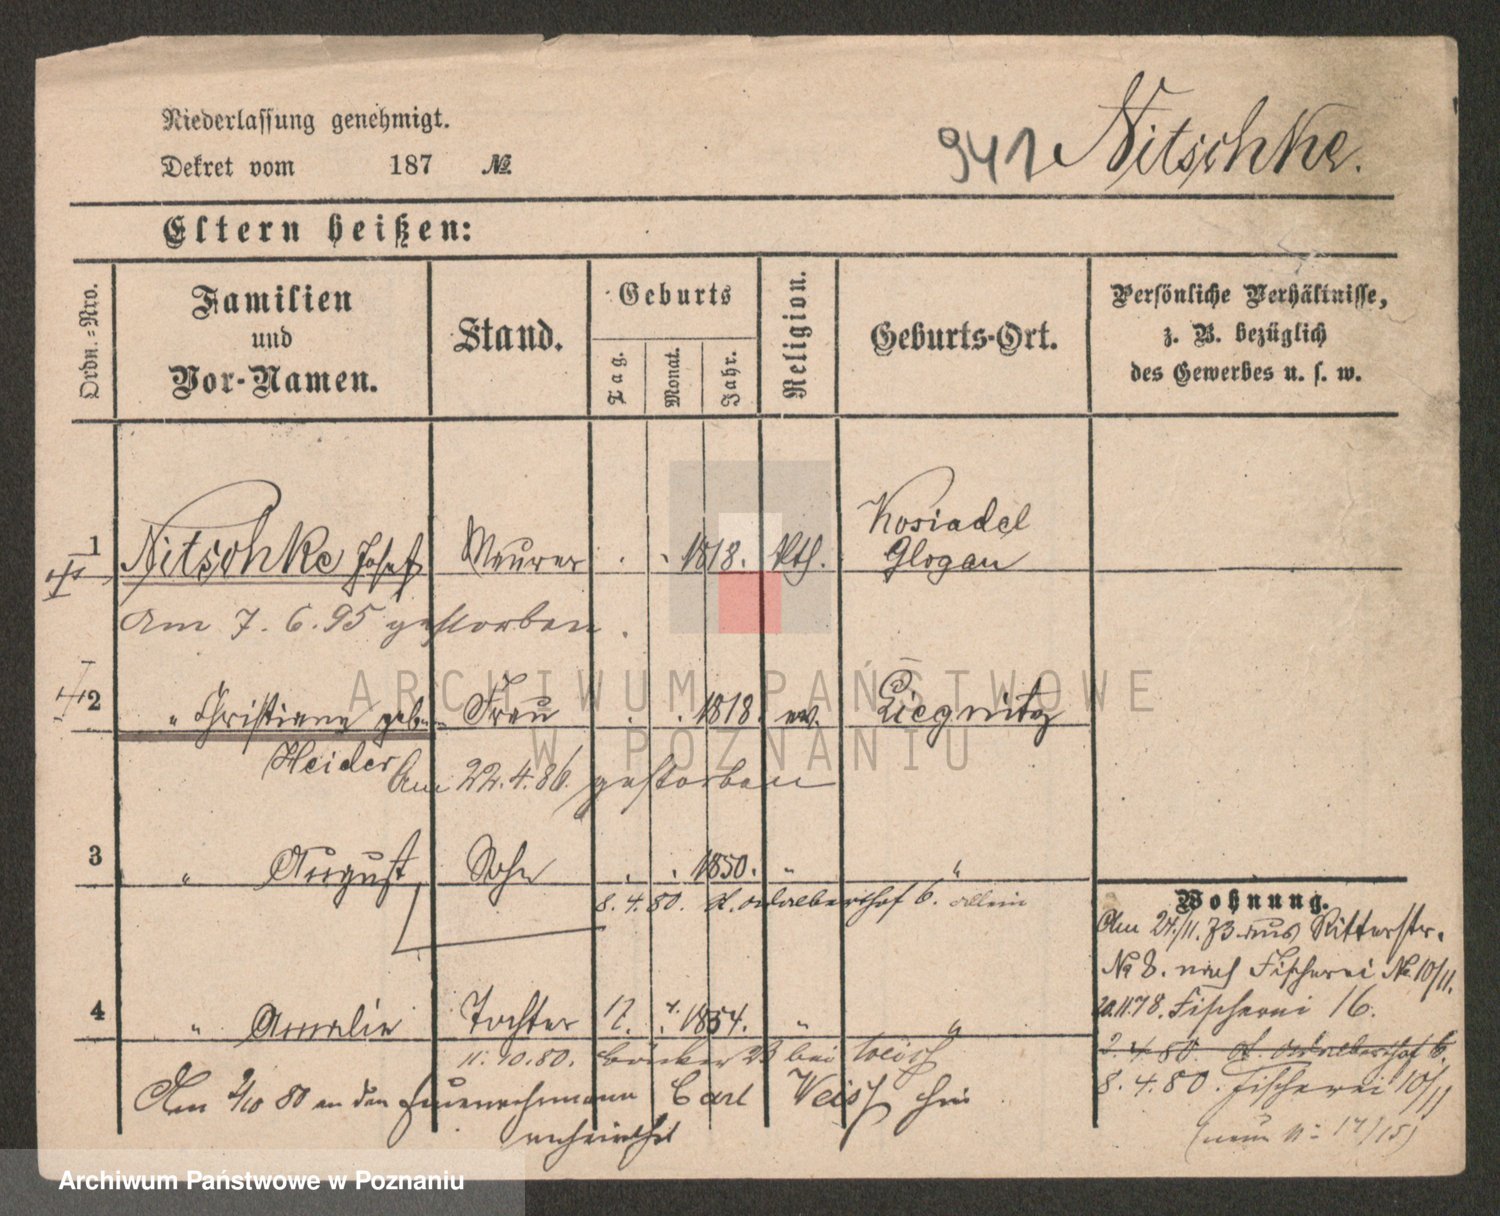 Niederlassung genehmigt.
Dekret vom 187 №
941 Nitschke.
Eltern heißen:
Ordn.-Nro.
Familien
und
Vor-Namen.
Stand.
Geburts
Tag.
Monat.
Jahr.
Religion.
Geburts-Ort.
Persönliche Verhältnisse,
z. B. bezüglich
des Gewerbes u. s. w.
1 Nitschke Josef Maurer . . 1818. kth. Kosiadel
Glogau
Am 7.6.95 gestorben.
2 " Christiane geb. Frau . . 1818. ev. Liegnitz
Heider
Am 22.4.86. gestorben
3 " August Sohn . . 1850. " "
8.4.80. Adalbertshof 6. allein
4 " Amalie Tochter 1854. " "
11.10.80. 23 bei Weiss
Am 2/10 80 an den Feuerwehrmann Carl Weiss hier
verheirathet
Wohnung.
Am 24/11.73 aus Ritterstr.
No 8. nach Fischerei No 10/11.
20.11.78. Fischerei 16.
2.4.80. Adalbertshof 6.
8.4.80. Fischerei 10/11
(neue N: 14/15)
ARCHIWUM PAŃSTWOWE
W POZNANIU
Archiwum Państwowe w Poznaniu